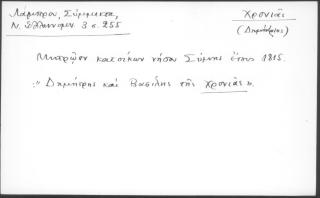 Λάμπρου, Σύμμικτα,
Ν. Ἑλληνομν. 3 σ. 255
Χρονιᾶς
(Δημήτριος)
κατοίκων νήσου Σύμης ἔτους 1815.
"Δημήτρης καὶ Βασίλης τῆς Χρονιᾶς".